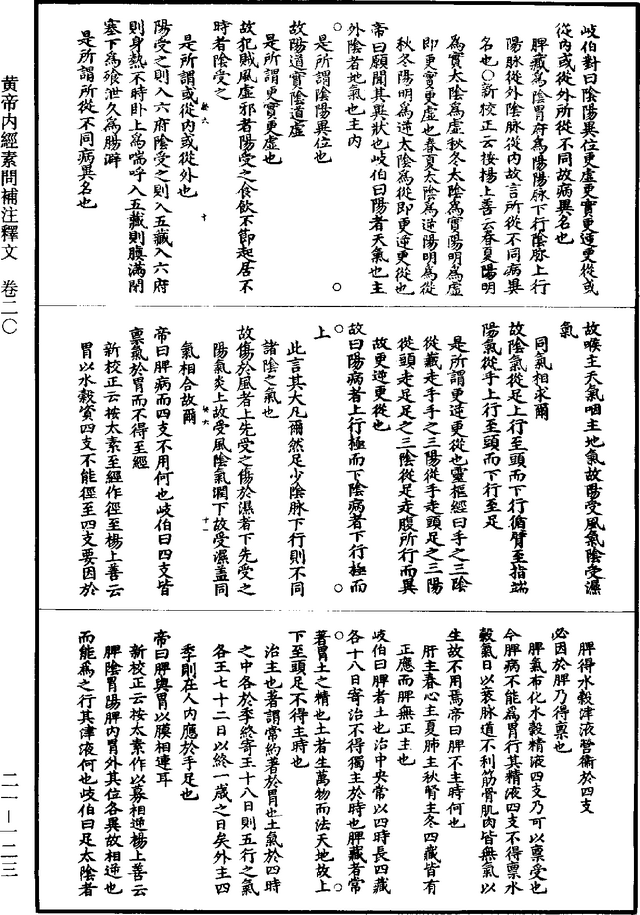 黄帝内經素問補注釋文　卷二〇
二一—一二三
岐伯對曰陰陽異位更虛更實更逆更從或
從内或從外所從不同故病異名也
脾藏為陰胃府為陽陽脉下行陰脉上行
陽脉從外陰脉從内故言所從不同病異
名也○新校正云按楊上善云春夏陽明
為實太陰為虛秋冬太陰為實陽明為虛
即更實更虛也春夏太陰為逆陽明為從
秋冬陽明為逆太陰為從即更逆更從也
帝曰願聞其異狀也岐伯曰陽者天氣也主
外陰者地氣也主内
是所謂陰陽異位也
故陽道實陰道虛
是所謂更實更虛也
故犯賊風虛邪者陽受之食飲不節起居不
時者陰受之
是所謂或從内或從外也
陽受之則入六府陰受之則入五藏入六府
則身熱不時卧上為喘呼入五藏則䐜滿閉
塞下為飱泄久為腸澼
是所謂所從不同病異名也
故喉主天氣咽主地氣故陽受風氣陰受濕
氣
同氣相求爾
故陰氣從足上行至頭而下行循臂至指端
陽氣從手上行至頭而下行至足
是所謂更逆更從也靈樞經曰手之三陰
從藏走手手之三陽從手走頭足之三陽
從頭走足足之三陰從足走腹所行而異
故更逆更從也
故曰陽病者上行極而下陰病者下行極而
上
此言其大凡爾然足少陰脉下行則不同
諸陰之氣也
故傷於風者上先受之傷於濕者下先受之
陽氣炎上故受風陰氣潤下故受濕蓋同
氣相合故爾
帝曰脾病而四支不用何也岐伯曰四支皆
禀氣於胃而不得至經
新校正云按太素至經作徑至楊上善云
胃以水穀資四支不能徑至四支要因於
脾得水穀津液營衞於四支
必因於脾乃得禀也
脾氣布化水穀精液四支乃可以禀受也
今脾病不能為胃行其精液四支不得禀水
穀氣日以衰脉道不利筋骨肌肉皆無氣以
生故不用焉帝曰脾不主時何也
肝主春心主夏肺主秋腎主冬四藏皆有
正應而脾無正主也
岐伯曰脾者土也治中央常以四時長四藏
各十八日寄治不得獨主於時也脾藏者常
著胃土之精也土者生萬物而法天地故上
下至頭足不得主時也
治主也著謂常約著於胃也土氣於四時
之中各於季終寄王十八日則五行之氣
各王七十二日以終一歲之日矣外主四
季則在人内應於手足也
帝曰脾與胃以膜相連耳
新校正云按太素作以募相逆楊上善云
脾陰胃陽脾内胃外其位各異故相逆也
而能為之行其津液何也岐伯曰足太陰者